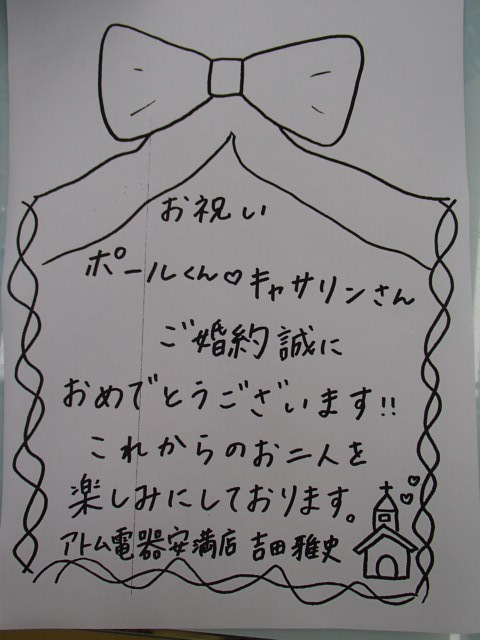 お祝い
ポールくん♡キャサリンさん
ご婚約誠に
おめでとうございます!!
これからのお二人を
楽しみにしております。
アトム電器安満店 吉田雅史